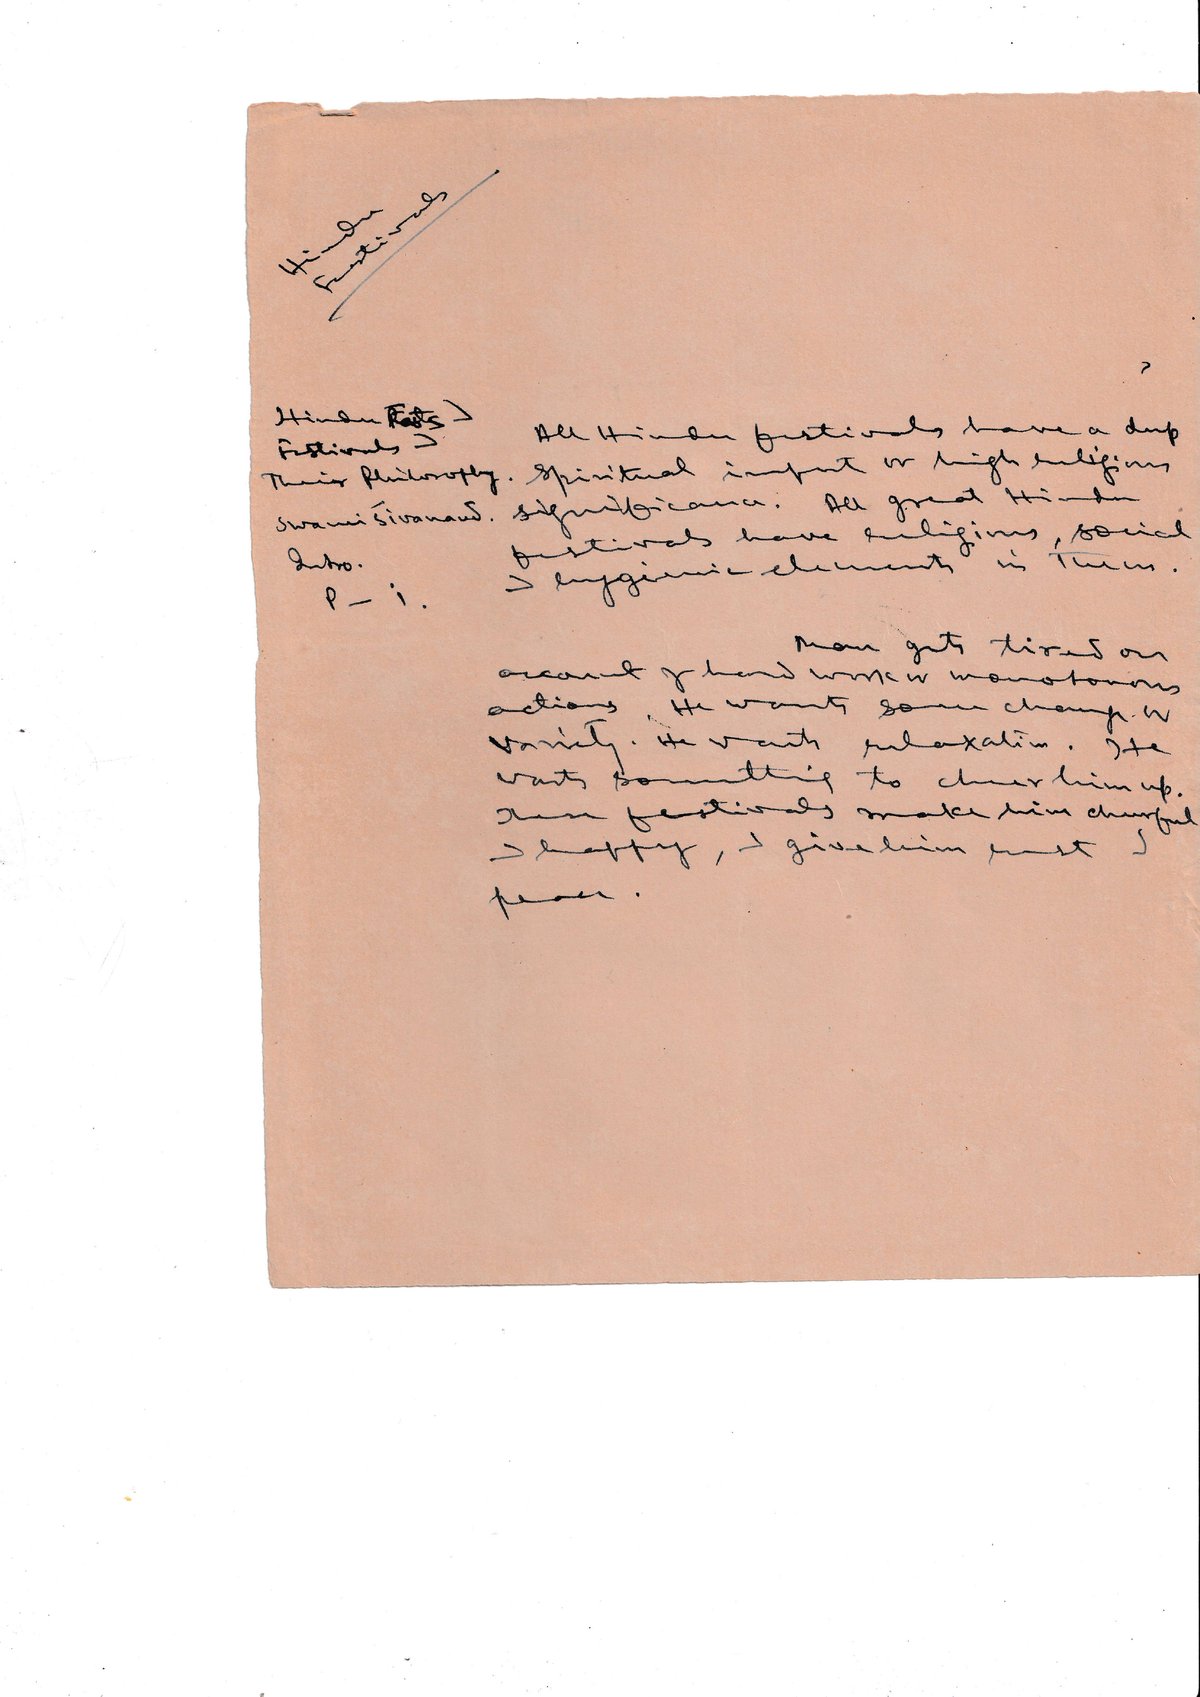 Hindu
Festivals
Hindu Fasts &
Festivals &
Their Philosophy.
Swami Sivanand.
Intro.
P – i.
All Hindu festivals have a deep
spiritual import or high religious
significance. All great Hindu
festivals have religious, social
& hygienic elements in them.
Man gets tired on
account of hard work or monotonous
actions. He wants some change or
variety. He wants relaxation. He
wants something to cheer him up.
These festivals make him cheerful
& happy, & give him rest &
peace.